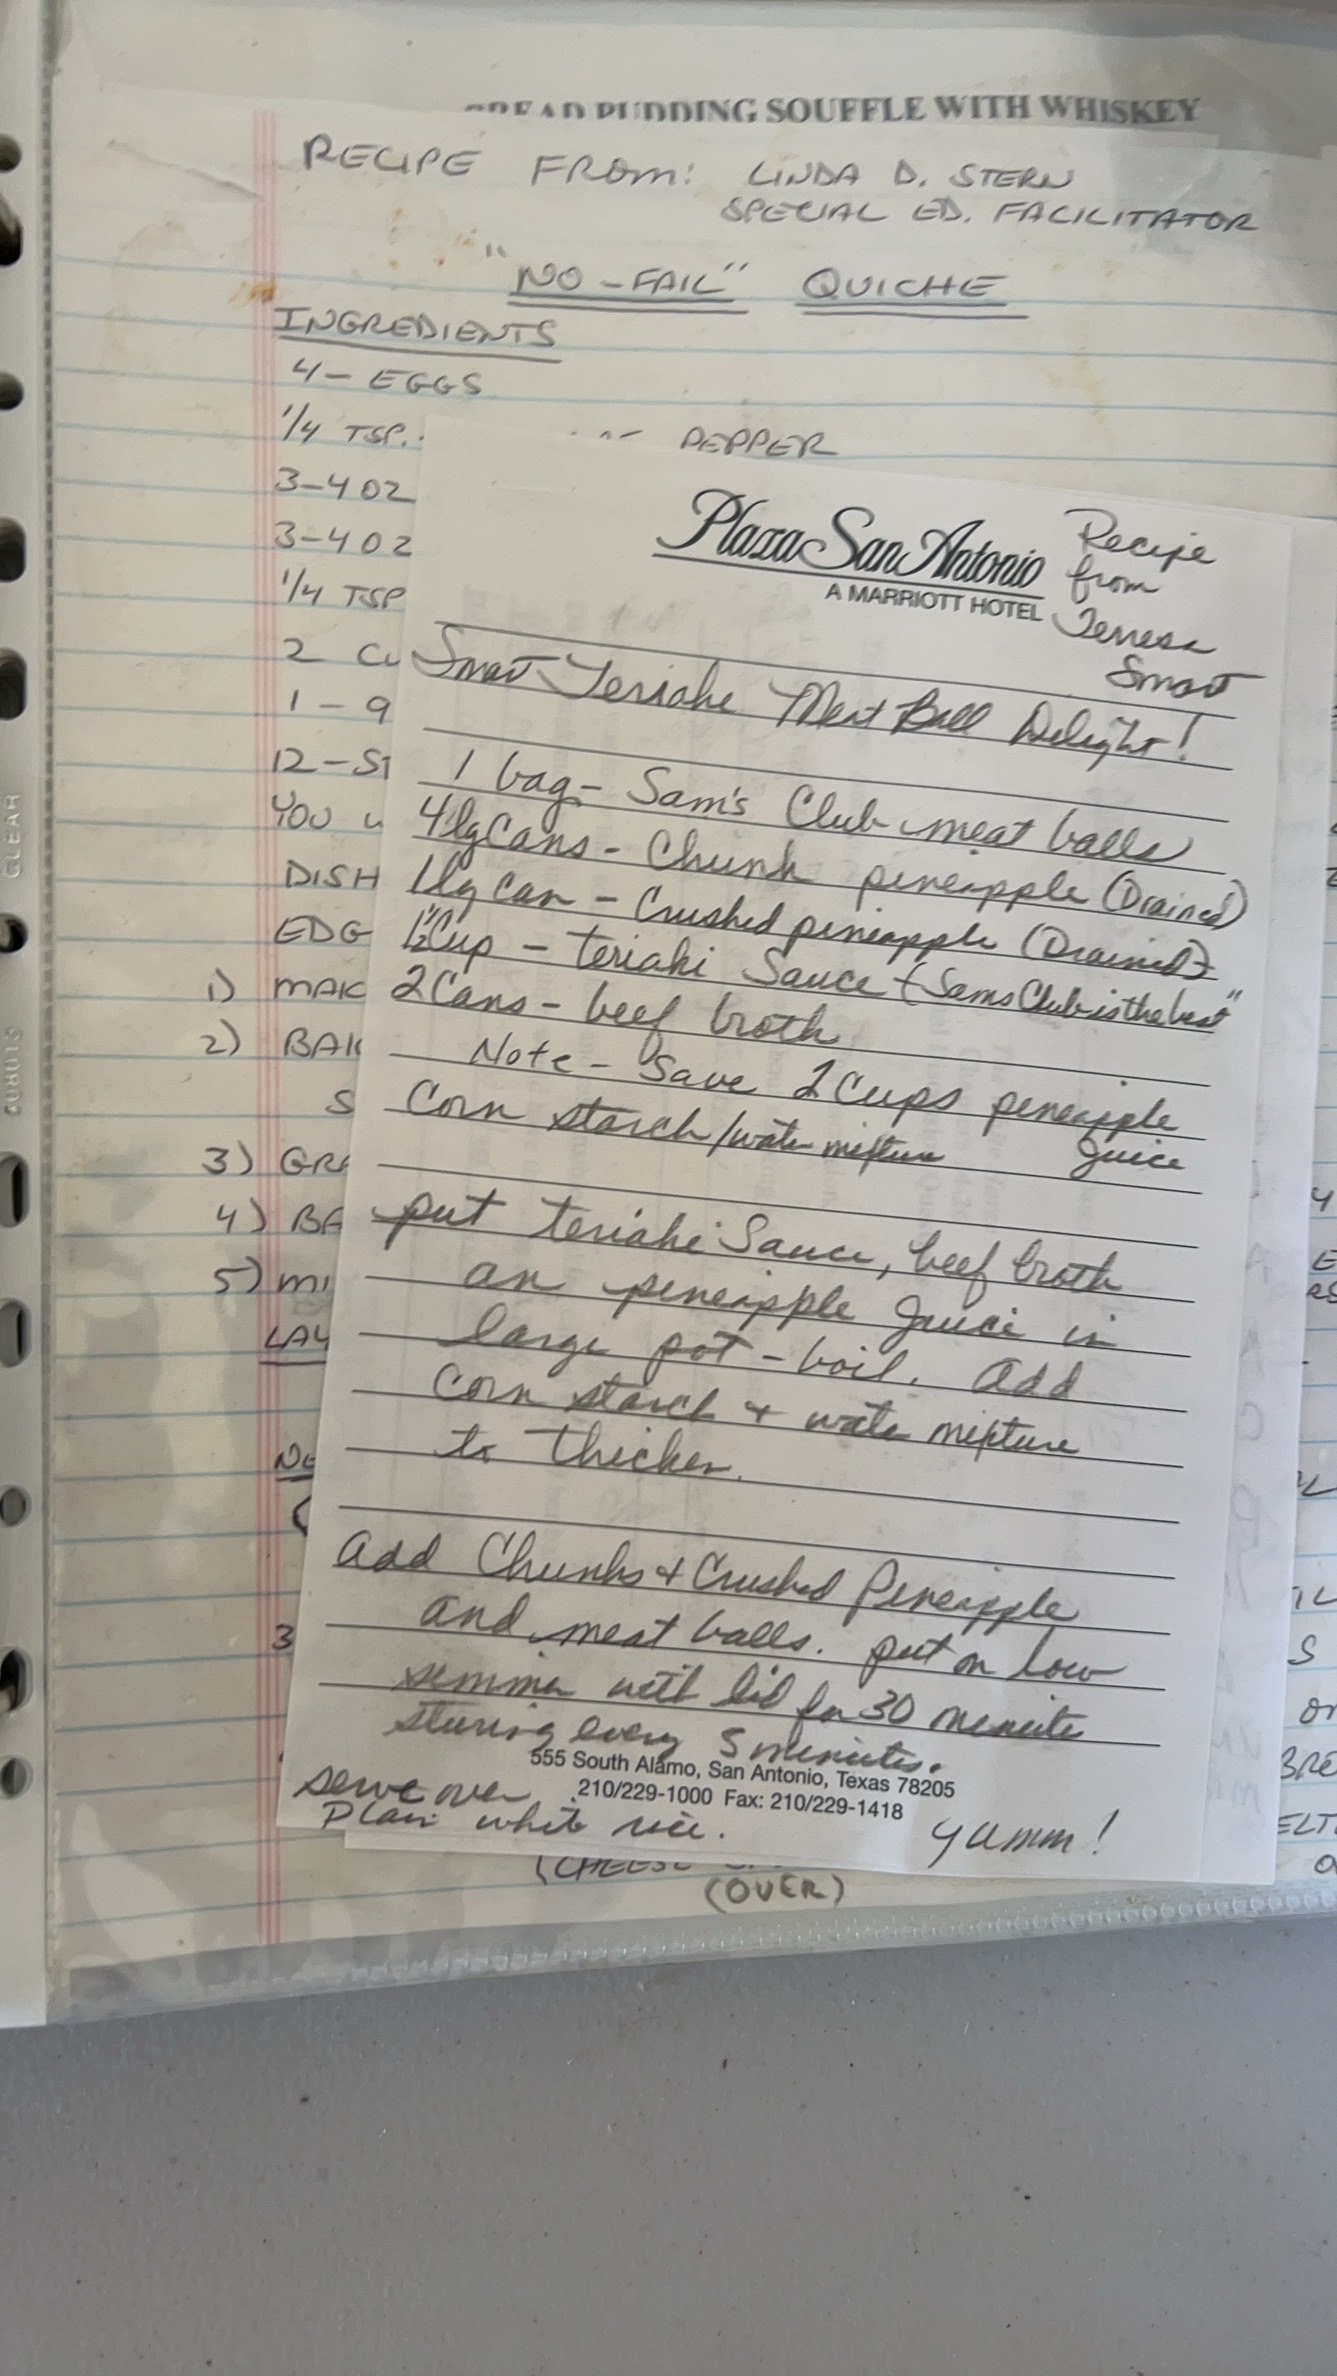 BREAD PUDDING SOUFFLE WITH WHISKEY
RECIPE FROM: LINDA D. STERN
SPECIAL ED. FACILITATOR
"NO-FAIL" QUICHE
INGREDIENTS
4- EGGS
1/4 TSP. PEPPER
3-4 OZ
3-4 OZ
1/4 TSP
2 CU
1 - 9
12-ST
YOU
DISH
EDG
1) MAK
2) BAK
S
3) GRA
4) BA
5) MI
LAY
NO
3
Plaza San Antonio
A MARRIOTT HOTEL
Recipe
from
Terresa
Smart
Smart Teriake Meat Ball Delight!
1 bag - Sam's Club meat balls
4 lg Cans - Chunk pineapple (Drained)
1 lg can - Crushed pineapple (Drained)
1 1/2 Cup - teriaki Sauce "Sams Club is the best"
2 Cans - beef broth
Note - Save 2 Cups pineapple
Juice
Corn starch/water mixture
put teriake Sauce, beef broth
an pineapple Juice in
large pot - boil. add
corn starch + water mixture
to thicken.
add Chunks + Crushed Pineapple
and meat balls. put on low
simmer with lid for 30 minute
sturing every 5 minutes.
555 South Alamo, San Antonio, Texas 78205
210/229-1000 Fax: 210/229-1418
serve over
Plain white rice.
yumm!
(CHEESE
(OVER)